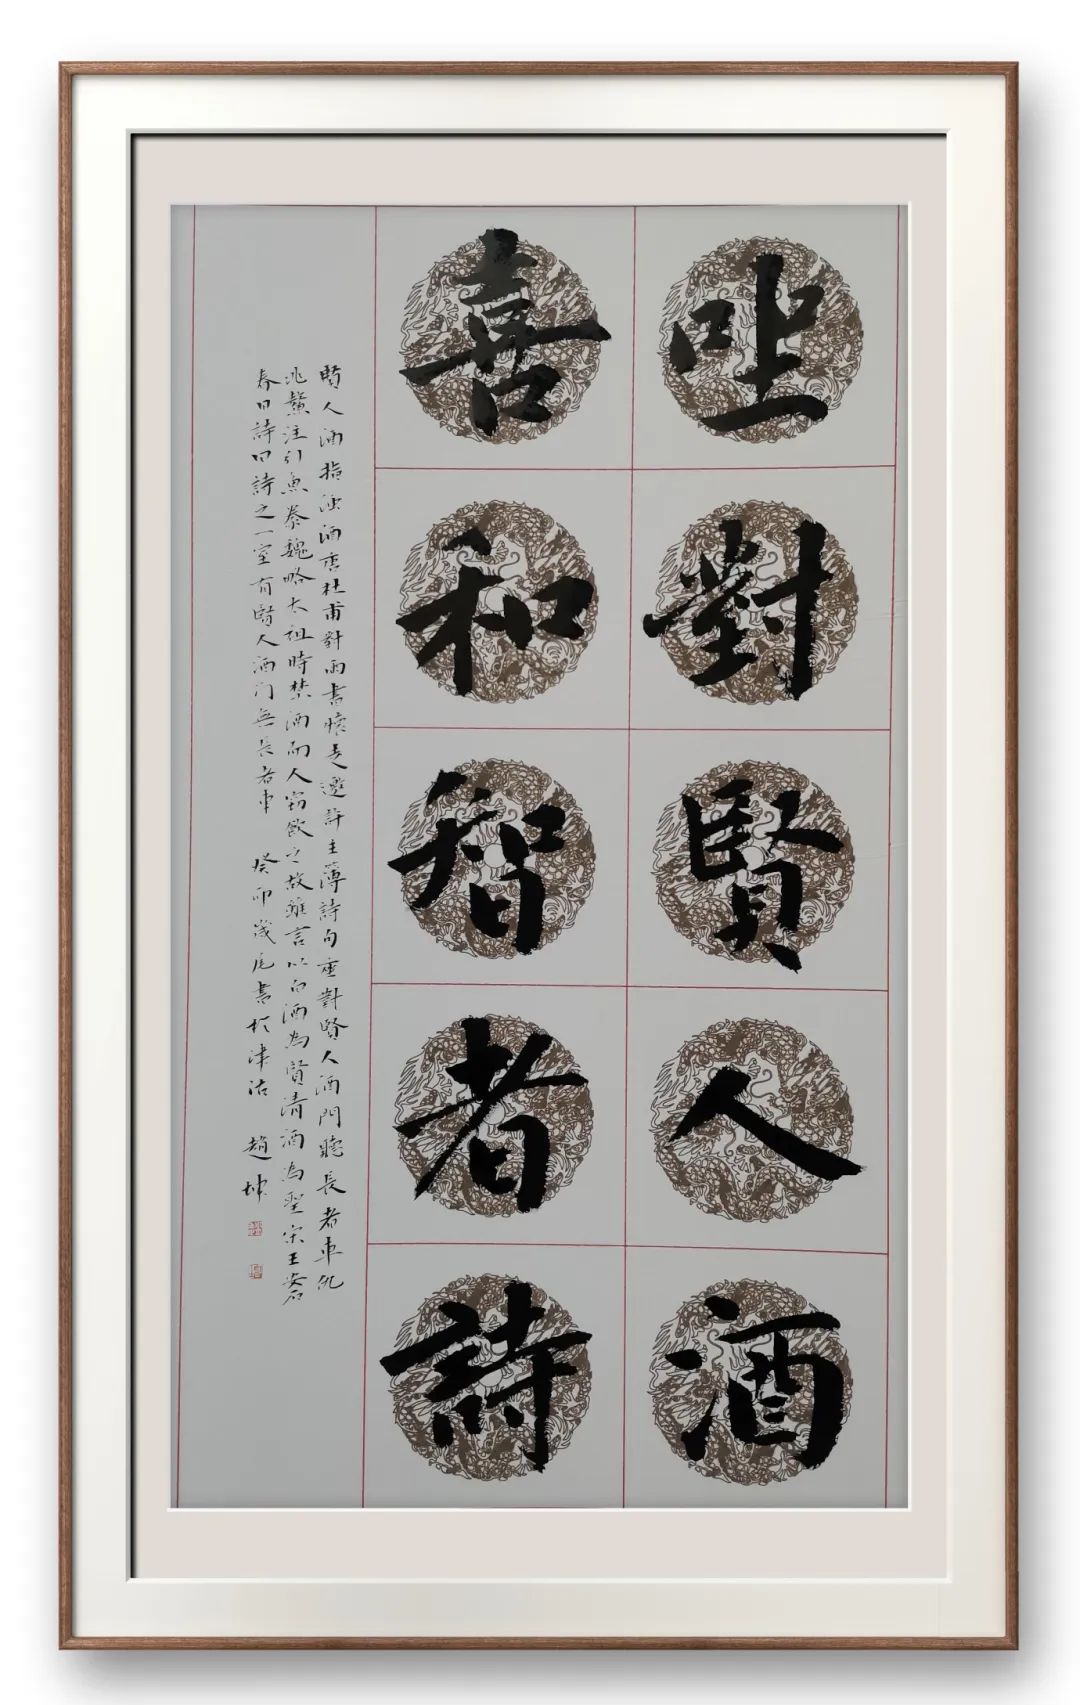 坐對賢人酒
喜和智者詩
賢人酒指濁酒唐杜甫對雨書懷走邀許主簿詩句座對賢人酒門聽長者車仇
兆鰲注引魚豢魏略太祖時禁酒而人窃飲之故難言以白酒為賢清酒為聖宋王安石
春日詩曰詩之一室有賢人酒门無長者車 癸卯歲尾書於津沽 趙坤